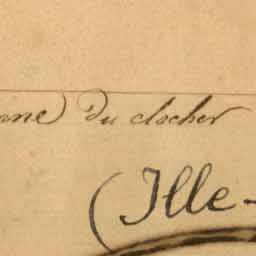 du clocher
(Ille-